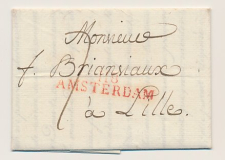 Monsieur
f. Briansiaux
118
AMSTERDAM
à Lille.